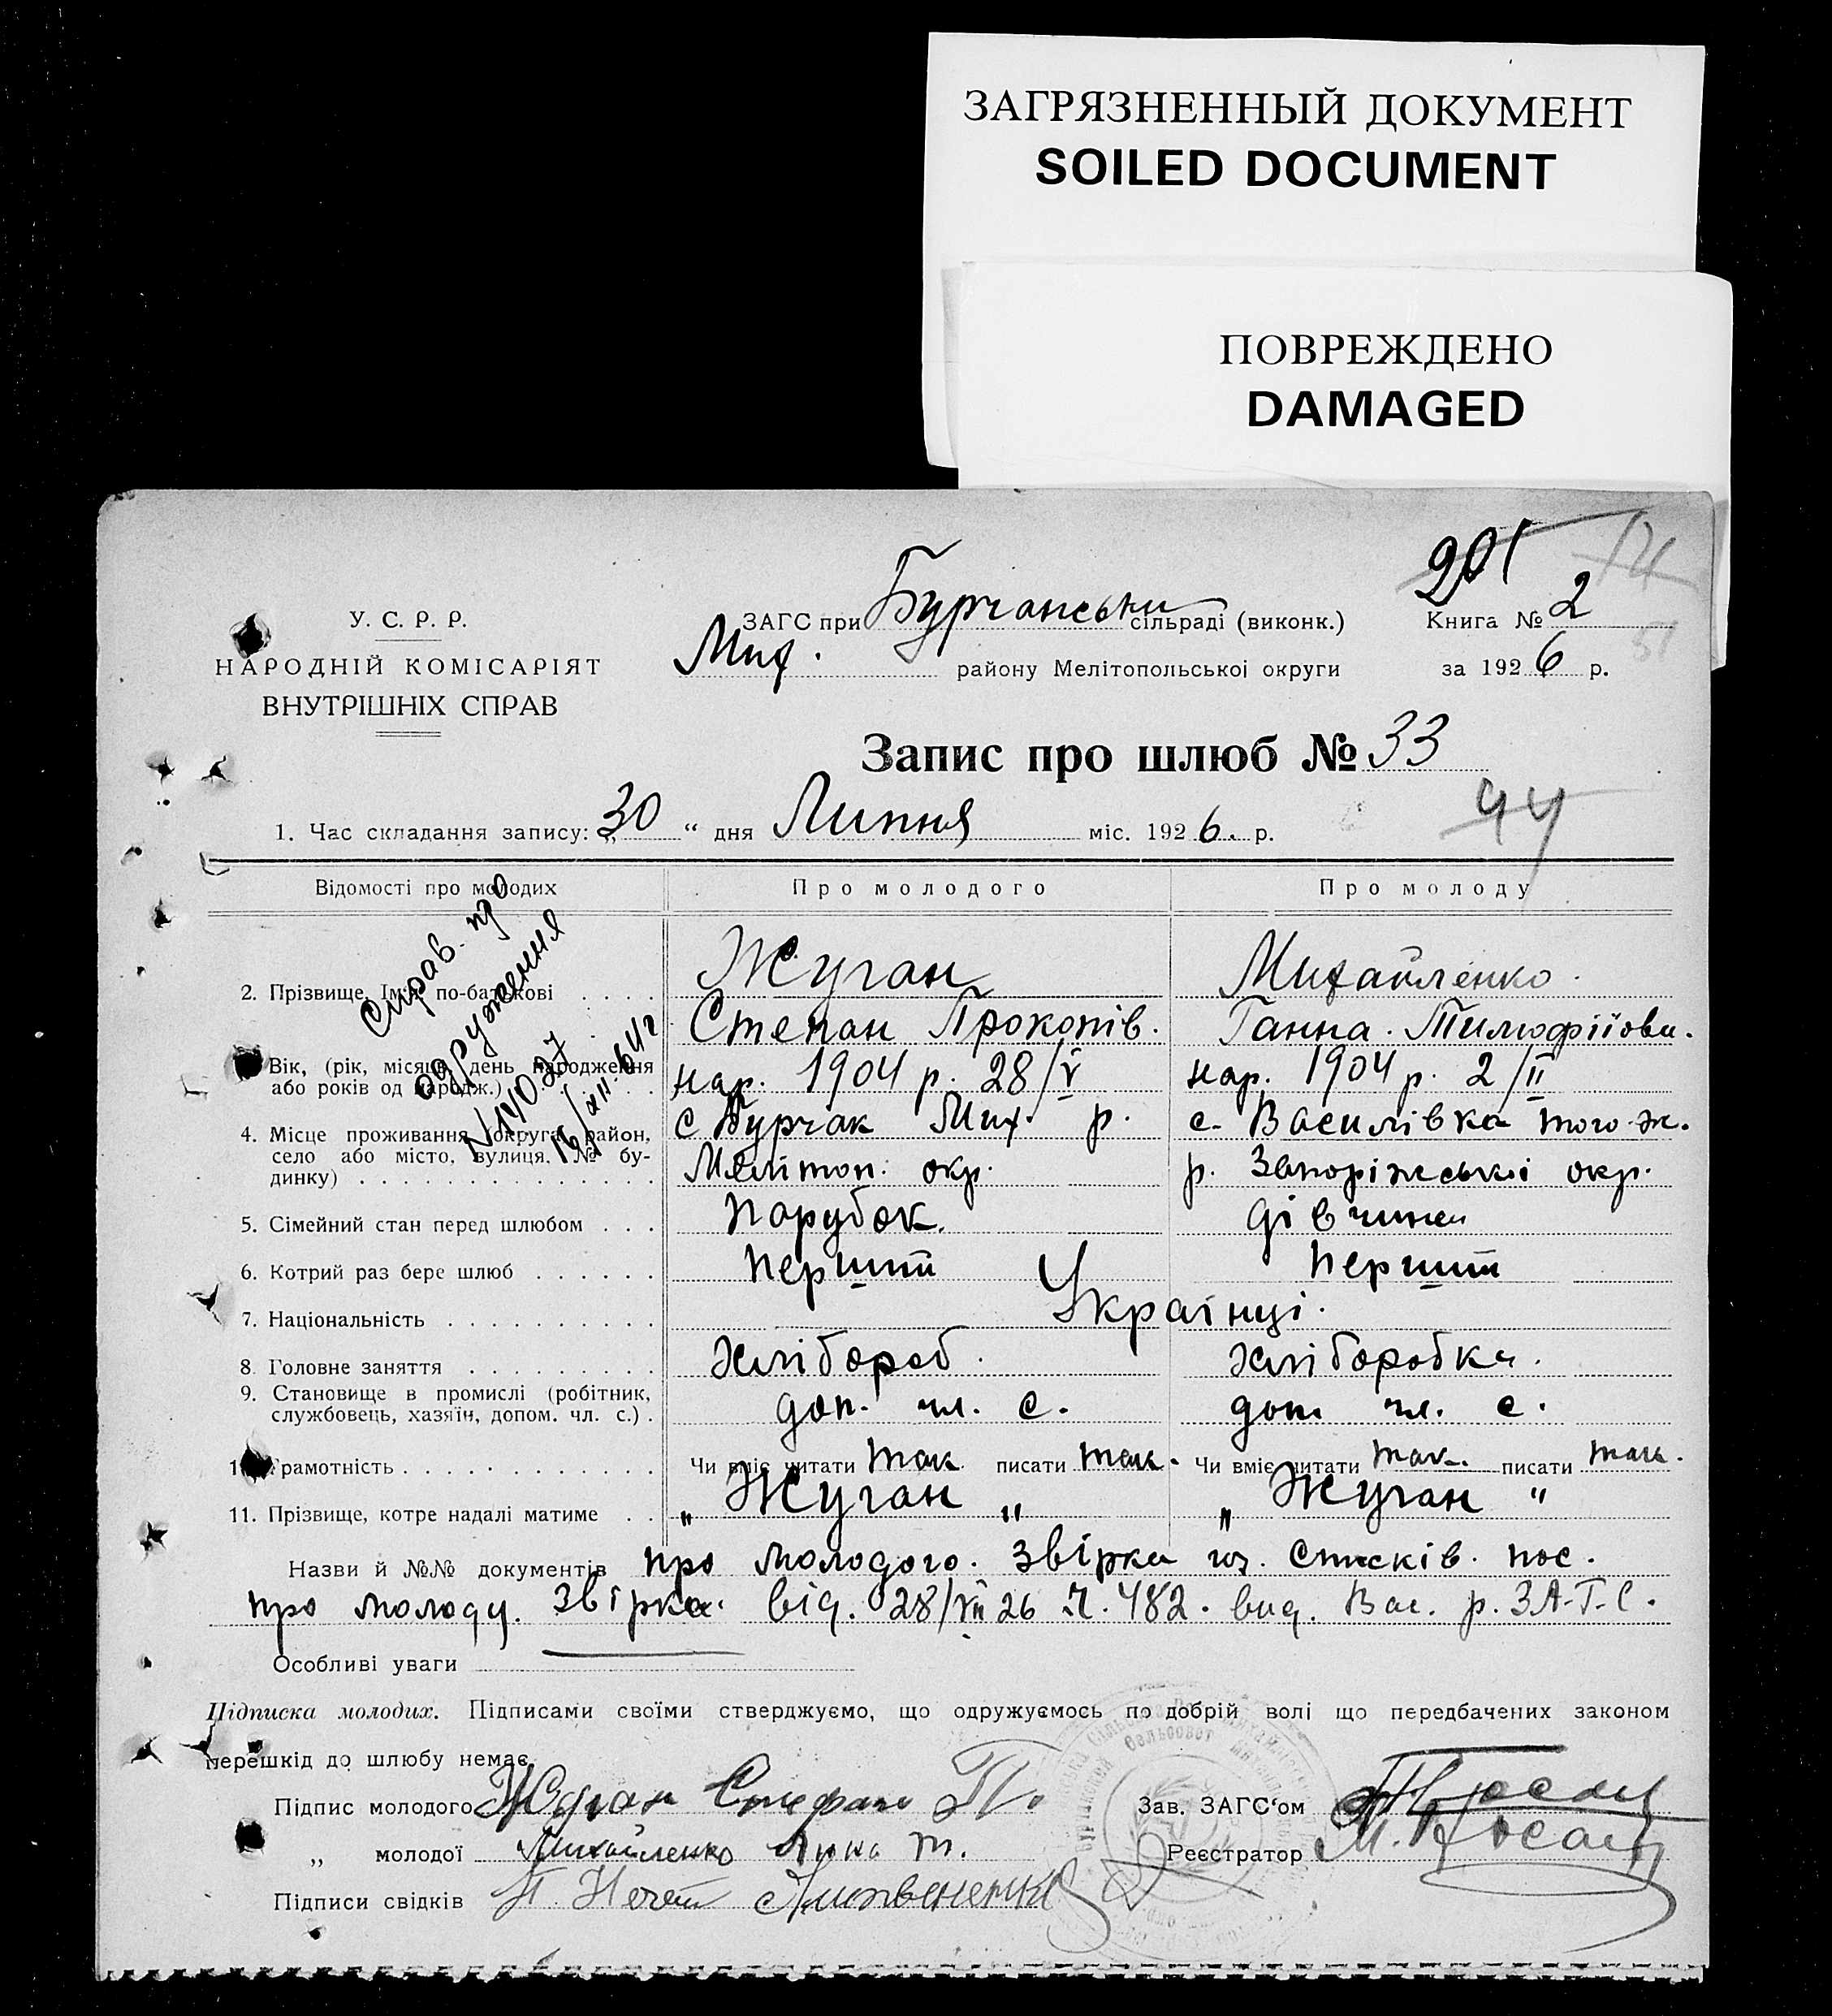 ЗАГРЯЗНЕННЫЙ ДОКУМЕНТ
SOILED DOCUMENT
ПОВРЕЖДЕНО
DAMAGED
201
У. С. Р. Р.
НАРОДНІЙ КОМІСАРІЯТ
ВНУТРІШНІХ СПРАВ
ЗАГС при Бурчанськи сільраді (виконк.)
Мих. району Мелітопольськоі округи
Книга № 2
51
за 1926 р.
Запис про шлюб № 33
44
1. Час складання запису: „30“ дня Липня міс. 1926. р.
Відомості про молодих Про молодого Про молоду
Справ. про
одруження
2. Прізвище, Ім'я, по-батькові . . . . Жуган Михайленко.
Степан Прокопів. Ганна. Тимофіїовн.
Вік, (рік, місяць, день народження
або років од народж.) . . . нар. 1904 р. 28/V нар. 1904 р. 2/II
4. Місце проживання (округа, район, с Бурчак Мих. р. с. Василівка того-ж.
село або місто, вулиця, № бу-
динку) . . . Меліт­оп. окр. р. Запоріжськоі окр.
5. Сімейний стан перед шлюбом . . . Парубок. дівчина
6. Котрий раз бере шлюб . . . . . . перший перший
7. Національність . . . . . . . . . . Украінці.
8. Головне заняття . . . . . . . . . Хлібороб. Хліборобка.
9. Становище в промислі (робітник,
службовець, хазяїн, допом. чл. с.) . доп. чл. с. доп. чл. с.
Грамотність . . . . . . . . . . . . Чи вміє читати так писати так. Чи вміє читати так. писати так.
11. Прізвище, котре надалі матиме . . „ Жуган „ „ Жуган "
Назви й №№ документів про молодого. Звірка из. списків. пос.
про молоду. Звірка. від. 28/VII 26 Ч. 482. вид. Вас. р. ЗА-Г-С.
Особливі уваги
Підписка молодих. Підписами своїми стверджуємо, що одружуємось по добрій волі що передбачених законом
перешкід до шлюбу немає.
Підпис молодого Жуган Стефан П. Зав. ЗАГС'ом
„ молодої Михайленко Анна Т. Реєстратор
Підписи свідків